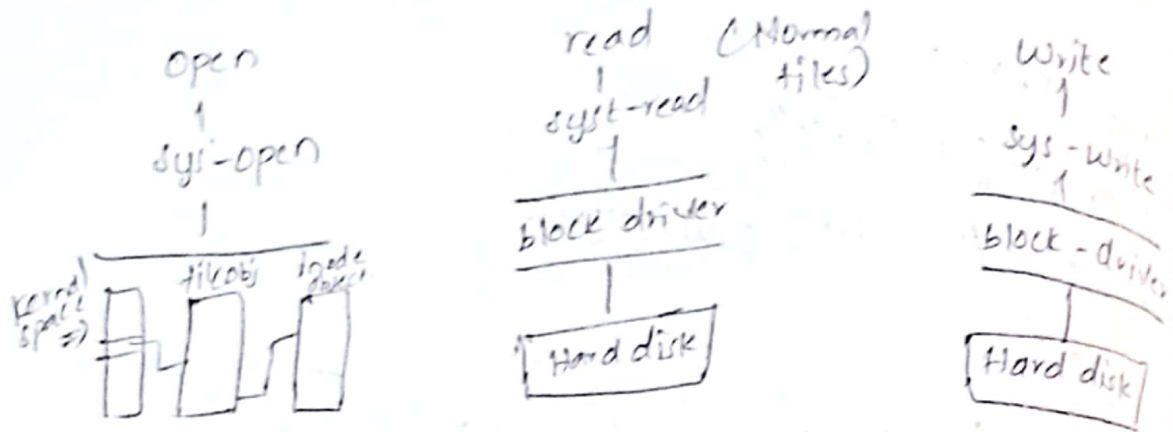 open
sys-open
kernal
space
=>
fileobj
inode
object
read (Normal
files)
syst-read
block driver
Hard disk
write
sys-write
block-driver
Hard disk